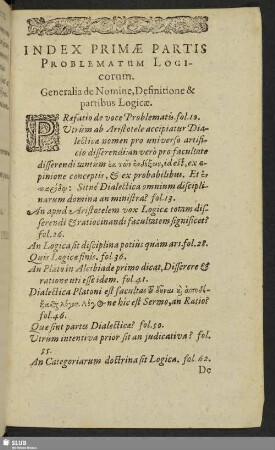 INDEX PRIMÆ PARTIS
PROBLEMATUM LOGI-
corum.
Generalia de Nomine, Definitione &
partibus Logicæ.
PRefatio de voce Problematis. fol. 12.
Utrum ab Aristotele accipiatur Dia-
lectica nomen pro universo artifi-
cio disserendi: an verò pro facultate
disserendi ex
pinione conceptis, & ex probabilibus. Et
Sitne Dialectica omnium discipli-
narum domina an ministra? fol. 13.
An apud Aristotelem vox Logicæ totam dis-
serendi & ratiocinandi facultatem significet?
fol. 26.
An Logica sit disciplina potius quàm ars. fol. 28.
Quis Logicæ finis. fol. 36.
An Plato in Alcibiade primo dicat, Disserere &
ratione uti esse idem. fol. 41.
Dialectica Platoni est facultas
& ne hic est Sermo, an Ratio?
fol. 46.
Quæ sint partes Dialecticæ? fol. 50.
Utrum inventiva prior sit an judicativa? fol.
55.
An Categoriarum doctrina sit Logica. fol. 62.
De
SLUB